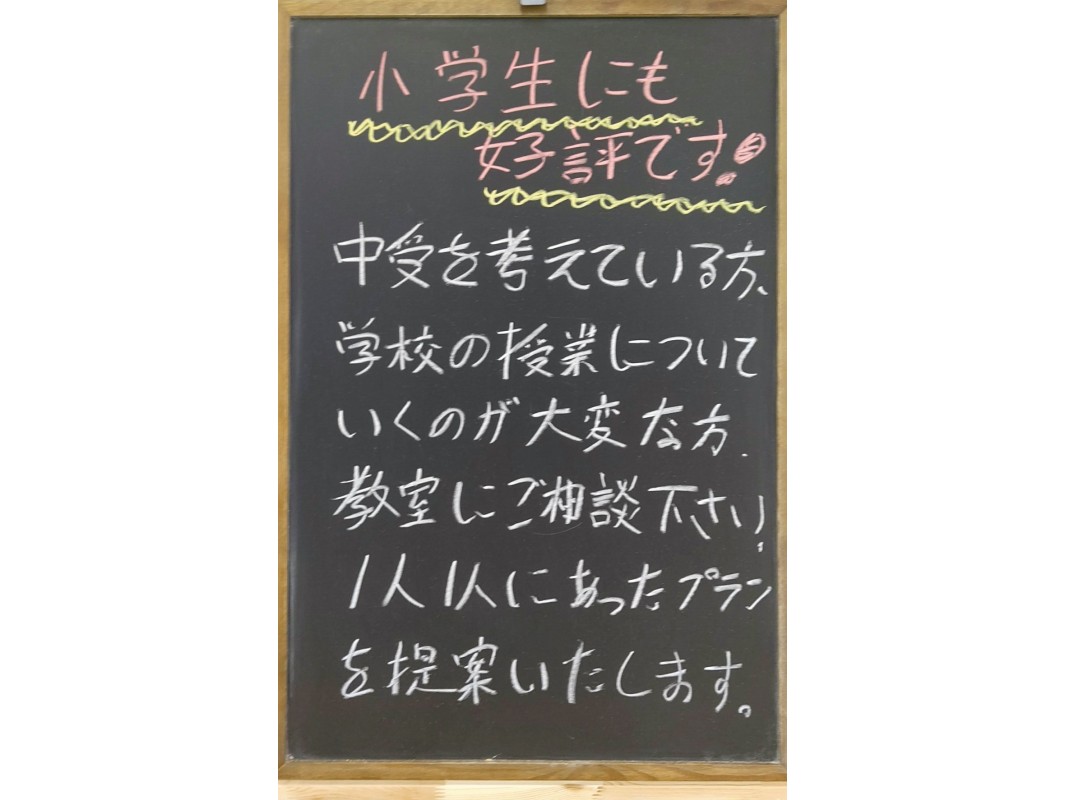 小学生にも
好評です!
中受を考えている方、
学校の授業について
いくのが大変な方.
教室にご相談下さい!
1人1人にあったプラン
を提案いたします。